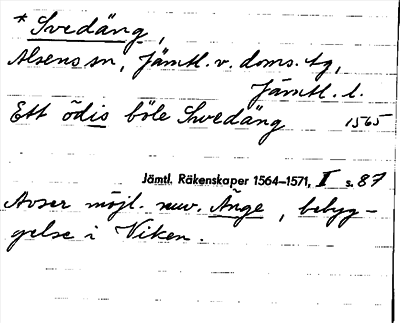 * Svedäng,
Alsens sn, Jämtl. v. doms. tg,
Jämtl. l.
Ett ödis böle Swedäng 1565
Jämtl. Räkenskaper 1564–1571, I s. 87
Avser möjl. nuv. Änge, bebyg-
gelse i Viken.